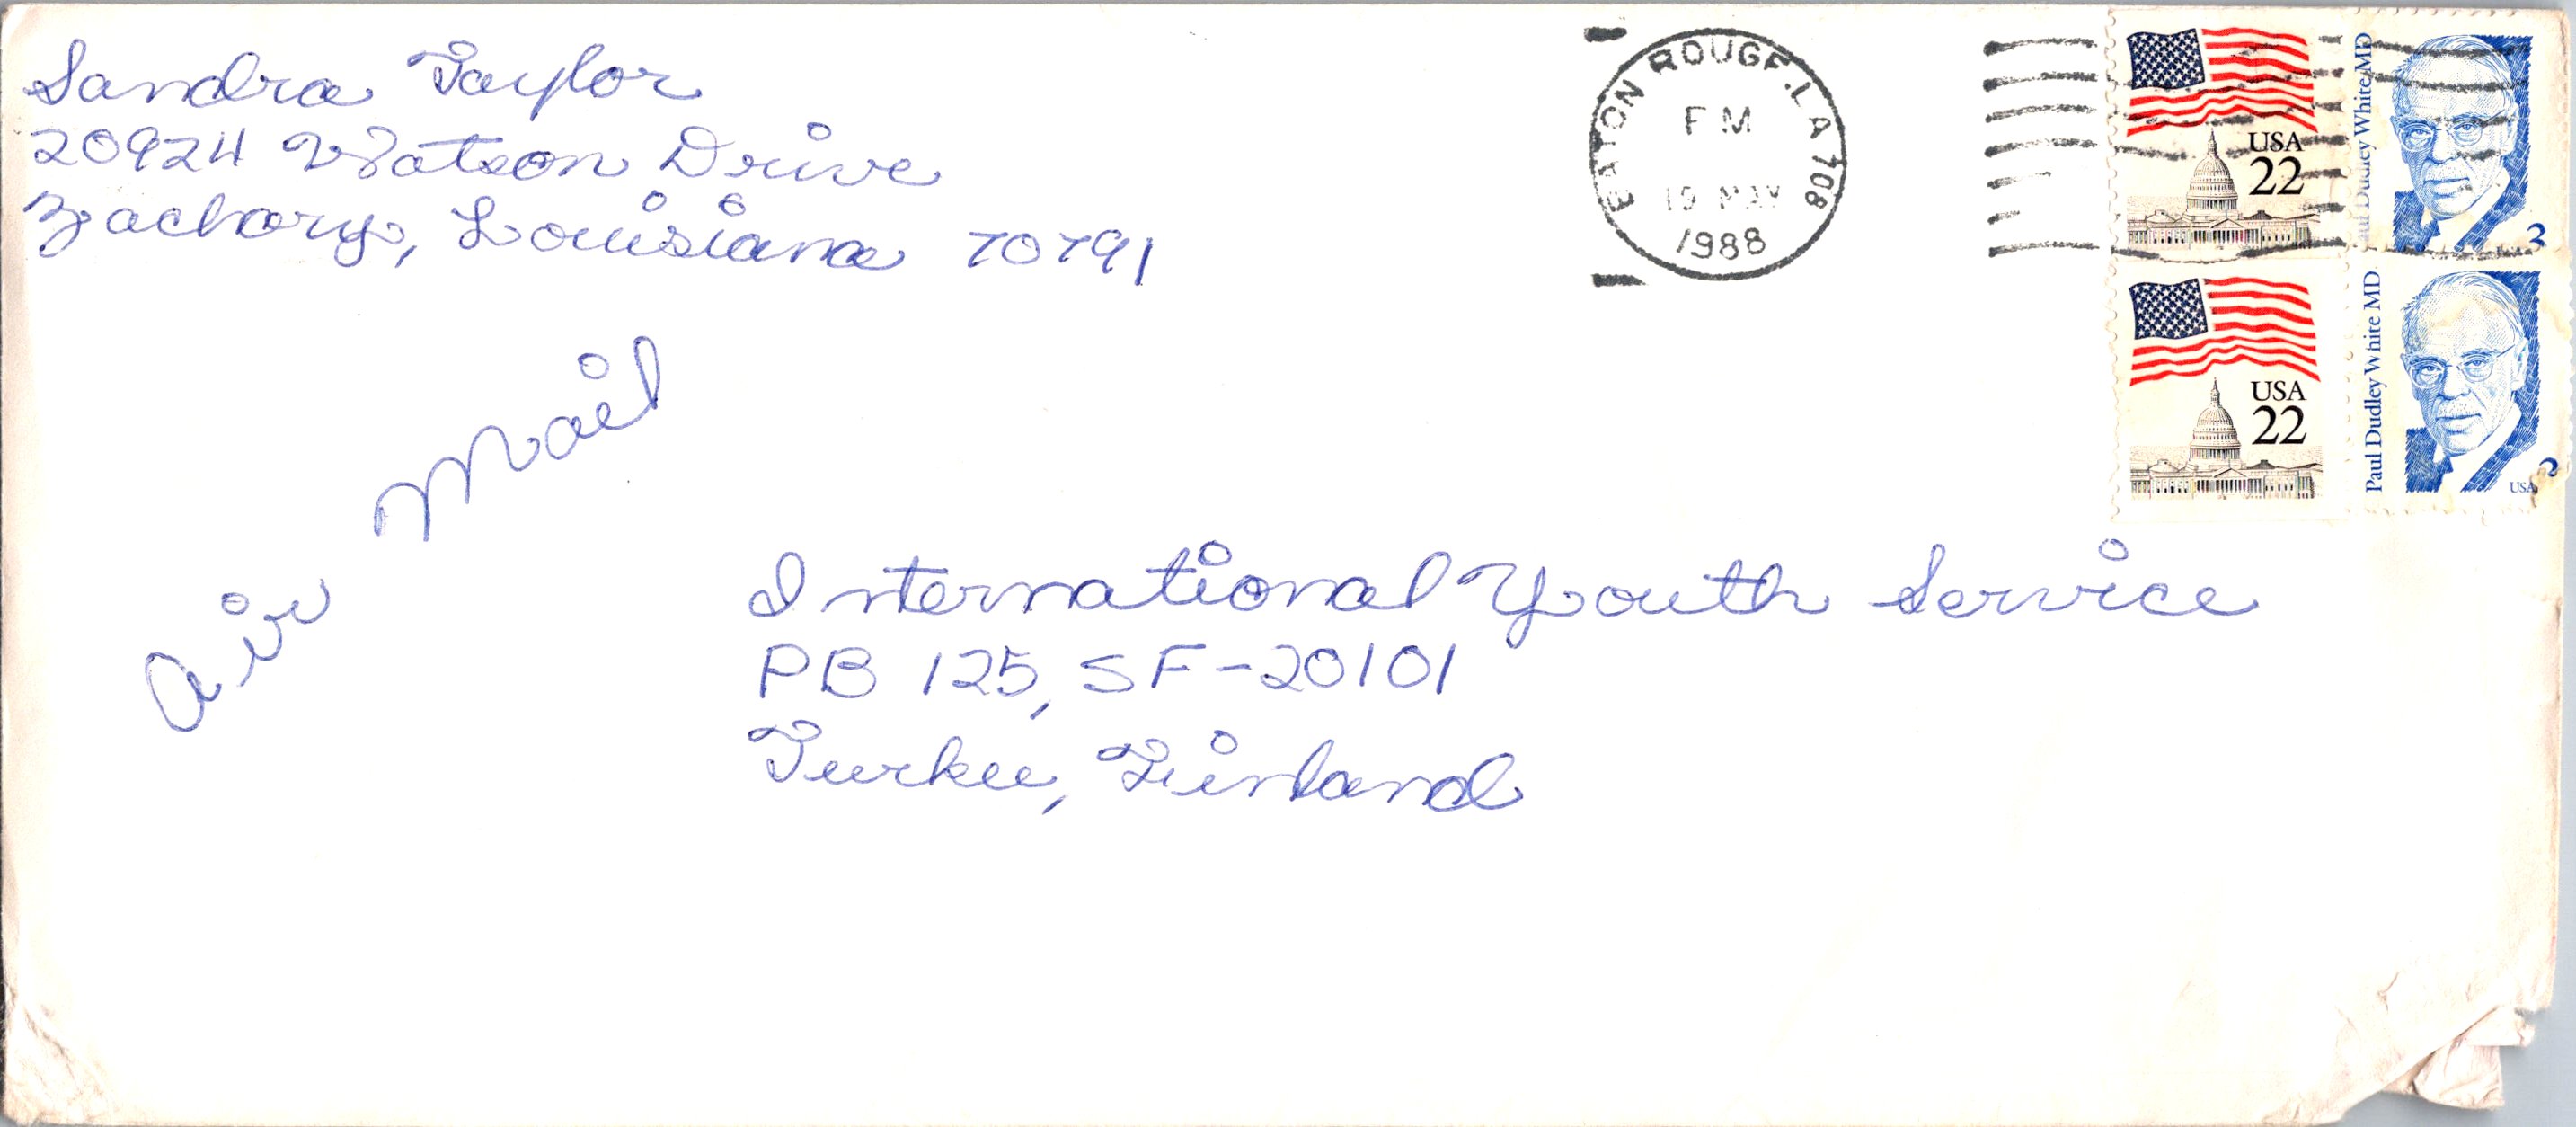 Sandra Taylor
20924 Watson Drive
Zachary, Louisiana 70791
BATON ROUGE, LA 708
PM
19 MAY
1988
USA
22
Paul Dudley White MD
3
USA
22
Paul Dudley White MD
USA
Air Mail
International Youth Service
PB 125, SF-20101
Turku, Finland